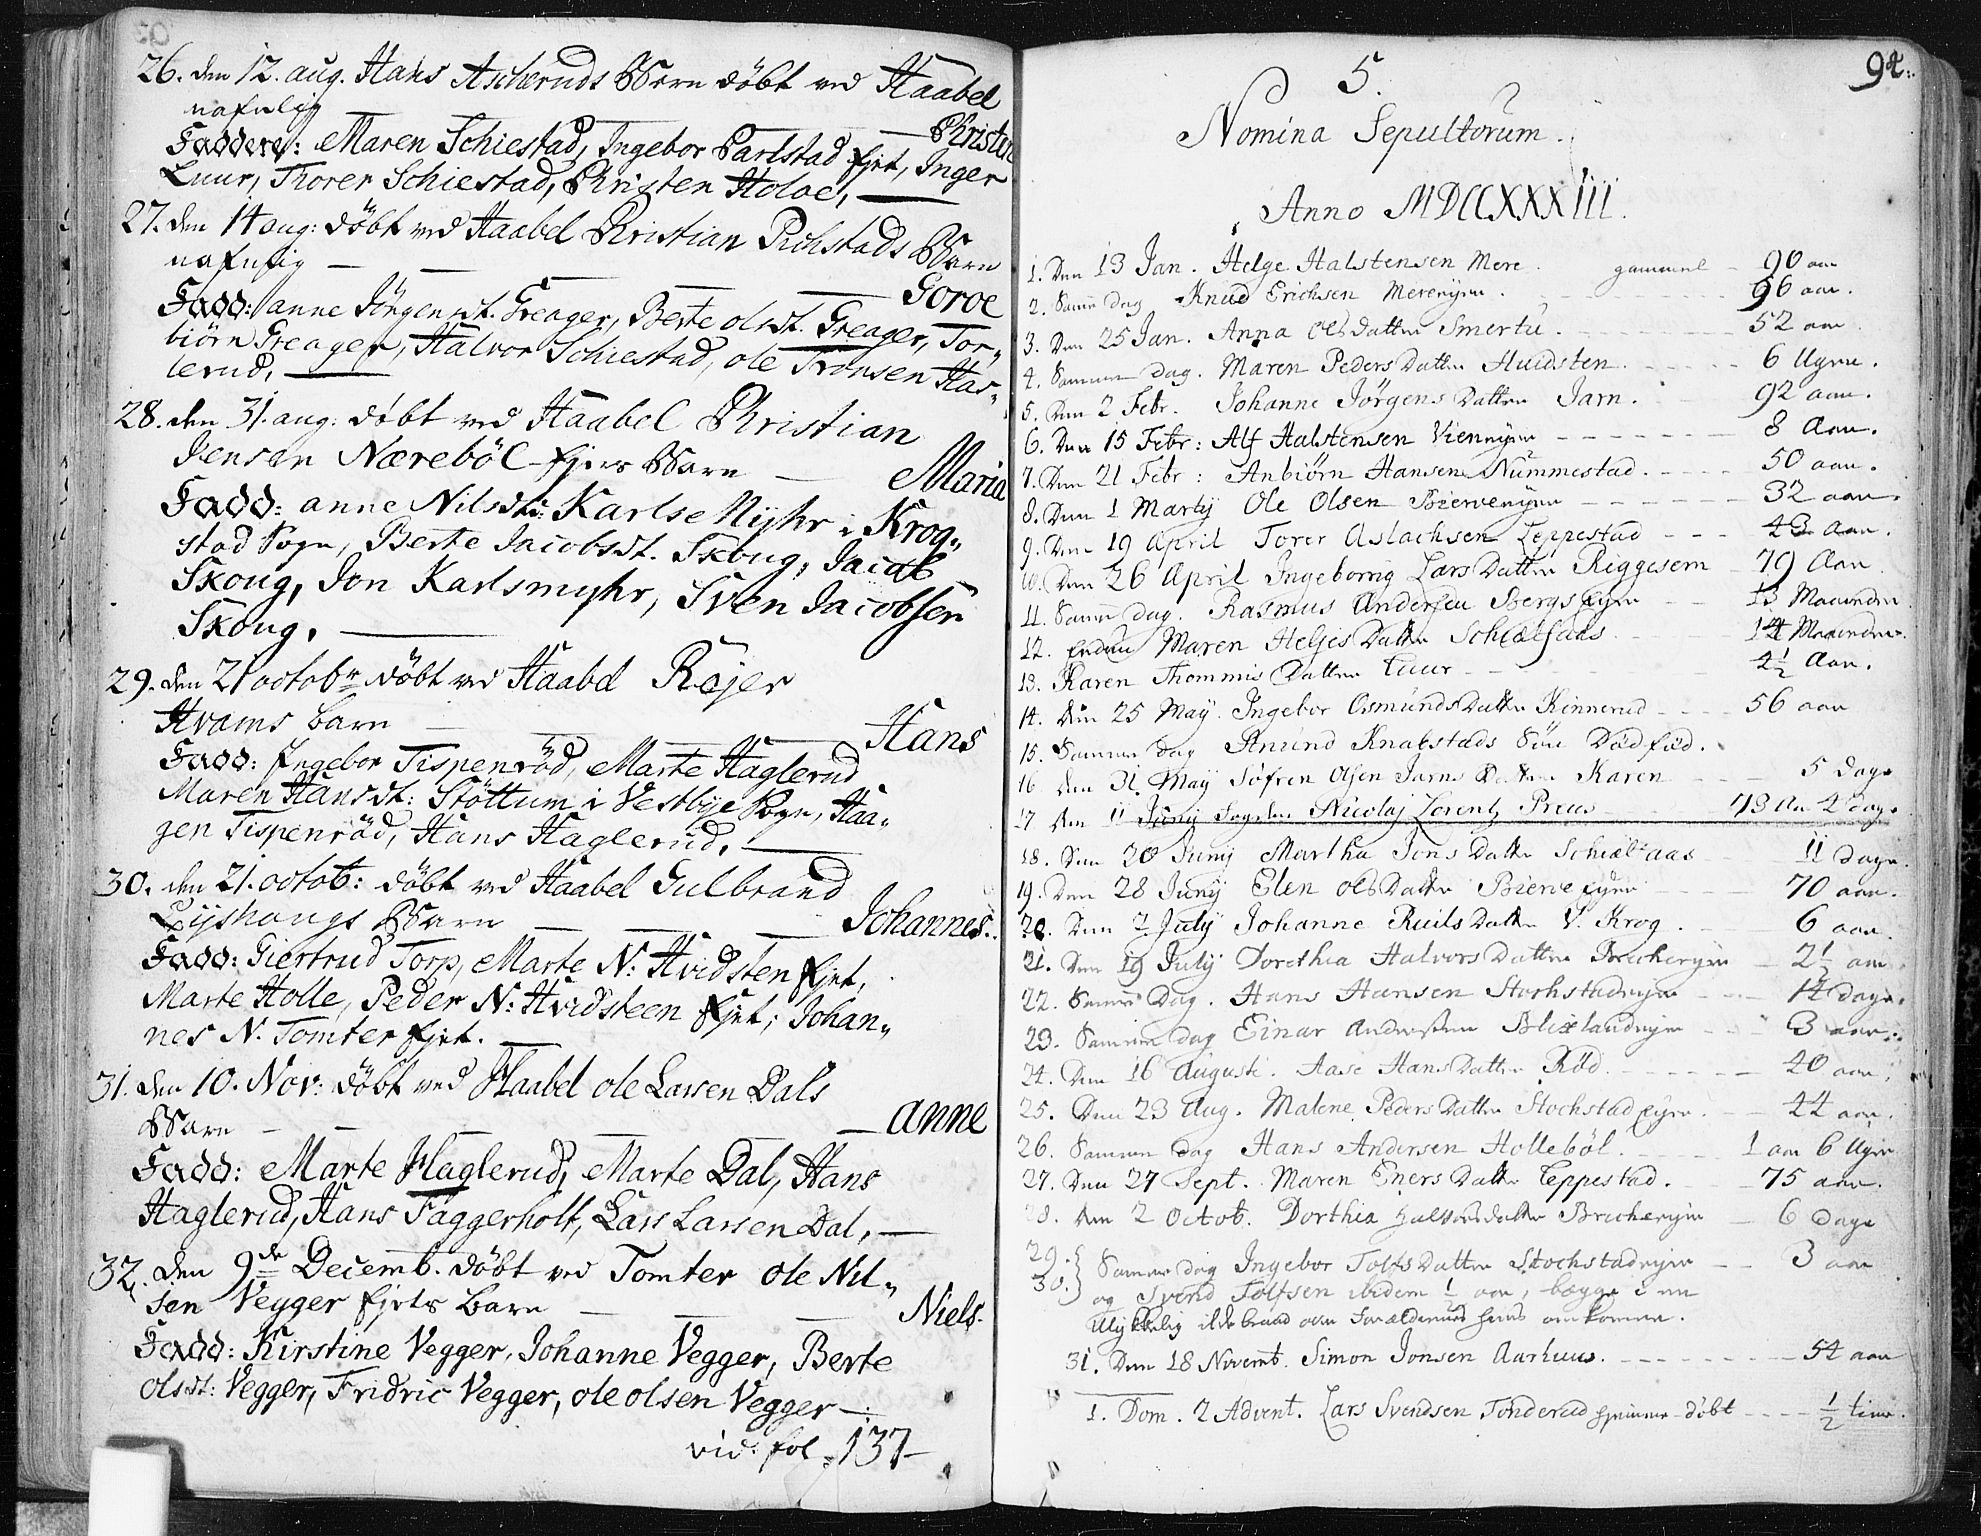 26. den 12. aug. Hans Ascheruds Barn döbt ved Haabel
nafnlig — Kristen
Faddere: Maren Schiestad, Ingebor Parlstad Ejet, Inger
Luur, Thorer Schiestad, Kristen Holoe,
27. den 14 aug: döbt ved Haabel Kristian Pichstads Barn
nafnlig — Goroe
Fadd: anne Jörgensdt. Greager, Berte olsdt. Greager, Tor-
biörn Greager, Halvor Schiestad, ole Tronsen Has-
lerud,
28. den 31. aug: döbt ved Haabel Kristian
Jensen Næreböl Ejers Barn — Maria
Fadd: anne Nilsdt: Karlsemyhr i Krog-
stad Sogn, Berte Jacobsdt. Skoug, Jacob
Skoug, Jon Karlsmyhr, Sven Jacobsen
Skoug.
29. den 21 octobr döbt ved Haabel Rejer
Hvams barn — Hans
Fadd: Ingebor Tispenröd, Marte Haglerud
Maren Hansdt: Stöttum i Vestbye Sogn, Haa-
gen Tispenröd, Hans Haglerud.
30. den 21. octob: döbt ved Haabel Gulbrand
Lijshougs Barn — Johannes.
Fadd: Giertrud Torp, Marte N: Hvidsten Ejet,
Marte Holle, Peder N: Hvidsteen Ejet; Johan-
nes N. Tomter Ejet.
31. den 10. Nov: döbt ved Haabel ole Larsen Dals
Barn — anne
Fadd: Marte Haglerud, Marte Dal, Hans
Haglerud, Hans Faggerholt, Lars Larsen Dal,
32. den 9de Decemb. döbt ved Tomter ole Nil-
sen Vegger Ejets barn — Niels.
Fadd: Kirstine Vegger, Johanne Vegger, Berte
olsdt: Vegger, Fridric Vegger, ole olsen Vegger
vid: fol: 137
94.
5.
Nomina Sepultorum.
Anno MDCCXXXIII.
1. Den 13 Jan. Helge Halstensen Mere. gammel - 90 aar
2. Samme dag Knud Erichsen Mereeyen. 96 aar.
3. Den 25 Jan. Anna OlsDatter Smertu. 52 aar
4. Samme dag. Maren PedersDatter Huidsten. 6 Uger.
5. Den 2 Febr. Johanne JörgensDatter Jarn. 92 aar.
6. Den 15 Febr: Alf Halstensen Vieneyen 8 Aar.
7. Den 21 Febr: Anbiörn Hansen Nummestad. 50 aar.
8. Den 1 Martij Ole Olsen Bierveeyen 32 aar.
9. Den 19 April Torer Aslachsen Teppestad 43 Aar.
10. Den 26 April Ingeborrig LarsDatter Riggesem 79 Aar
11. Samme dag. Rasmus Andersen Bergs Eyen 13 Maaneder
12. Endnu Maren HelgesDatter Schielfaas. 14 Maaneder.
13. Karen ThommisDatter Luur 4½ Aar.
14. Den 25 May. Ingebor OsmundsDatter Kinnerud 56 aar
15. Samme dag Amund Knabstads Sön Dödföd.
16 den 31 May Söfren Olsen Jarns Datter Karen 5 dage
17 den 11 Junij Nicolaj Lorentz Preus 73 Aar 2 dage.
18. Den 20 Junij Martha JonsDatter Schielfaas 11 dage.
19. Den 28 Junij Elen OlsDatter Bierve eyen 70 aar.
20. Den 2 July Johanne RuilsDatter V. Krog. 6 aar.
21. Den 19 July Dorethea HalvorsDatter Brecheeyen 2½ aar
22. Samme Dag. Hans Hansen Stochstadeyen 14 dage.
23. Samme dag Einar Andersen Blixlandeyen 3 aar.
24. Den 16 Augusti. Aase HansDatter Röd. 40 aar,
25. Den 23 Aug. Malene PedersDatter Stochstad Eyen. 44 aar.
26. Samme dag Hans Andersen Holleböl. 1 aar 6 Uger
27. Den 27 Sept. Maren EnersDatter Teppestad. 75 aar.
28. den 2 Octob. Dorthea Halvorsdatter Brecheeyen 6 dage
29. } Samme dag Ingebor TolfsDatter Stochstadeyen 3 aar
30. } og Svend Tolfsen ibidem ½ aar, begge i en
Ulykkelig ildebrand over Forældernes huus omkomne.
31. Den 18 Novemb. Simon Jonsen Aarhuus. 54 aar
1. Dom. 2 Advent. Lars Svendsen Tonderud hjemme-döbt ½ time.